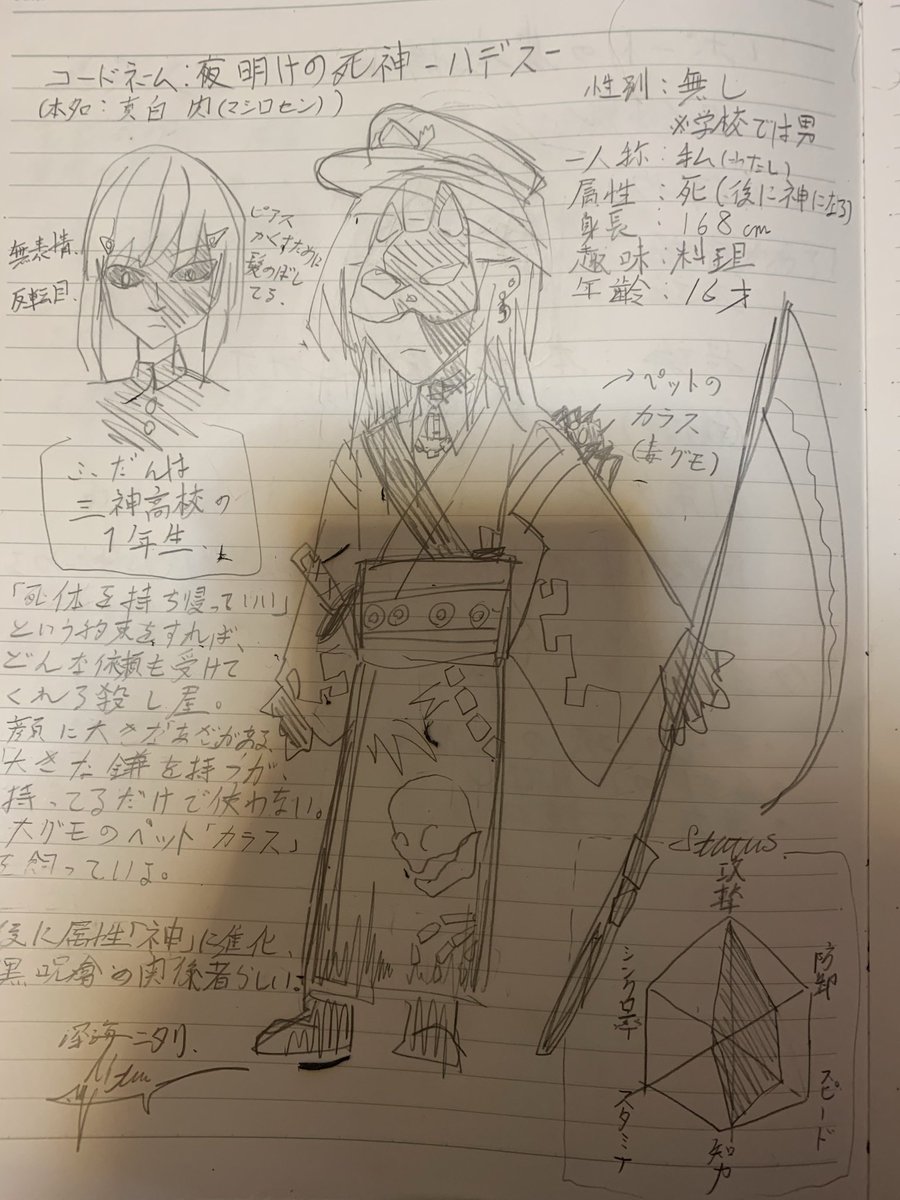 コードネーム:夜明けの死神-ハデス-
(本名:真白 肉(マシロセン))
性別:無し
※学校では男
一人称:私(わたし)
属性:死(後に神になる)
身長:168cm
趣味:料理
年齢:16才
無表情.
反転目.
ピアス
かくすために
髪のばし
てる.
→ペットの
カラス
(毒グモ)
ふだんは
三神高校の
1年生.
「死体を持ち帰っていい」
という約束をすれば、
どんな依頼も受けて
くれる殺し屋。
顔に大きなあざがある、
大きな鎌を持つが、
持ってるだけで使わない。
大グモのペット「カラス」
を飼っているよ。
後に属性「神」に進化、
黒呪會の関係者らしい。
深海ニタリ.
Status
攻撃
防御
スピード
知力
スタミナ
シンクロ率